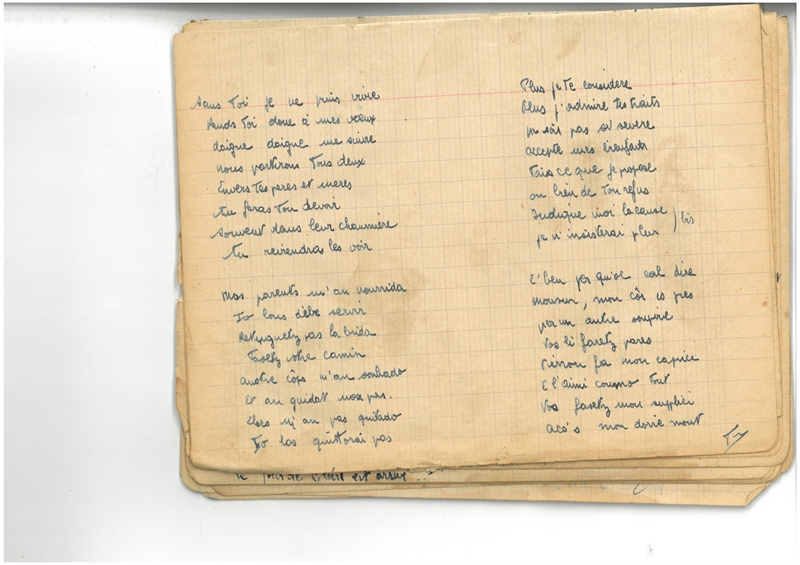 Sans Toi je ne puis vivre
Rends Toi donc à mes vœux
daigne daigne me suivre
nous partirons Tous deux
Envers Tes peres et meres
tu feras Ton devoir
souvent dans leur chaumière
tu reviendra les voir
Mos parents m'an nourrida
Io lous débe servir
pas la brida
Fasetz votre camin
autre côps m'an sonhado
Et an guidat mos pas.
Elses m'an pas quitado
Io los quittorai pas
Plus je Te considere
Plus j'admire Tes traits
ne sois pas si severe
accepte mes
Fais ce que je propose
au lieu de Ton refus
Indique moi la cause
je n'insisterai plus ) bis
E' ben per qu'ac cal dire
moussur, mon côr es pres
per un autre soupire
Vos li faretz pares
Pierrou fa mon caprice
E l'aimi coumo Tout
Vos faretz mon supplici
acò's mon darié mout
Fin
le est arrivé